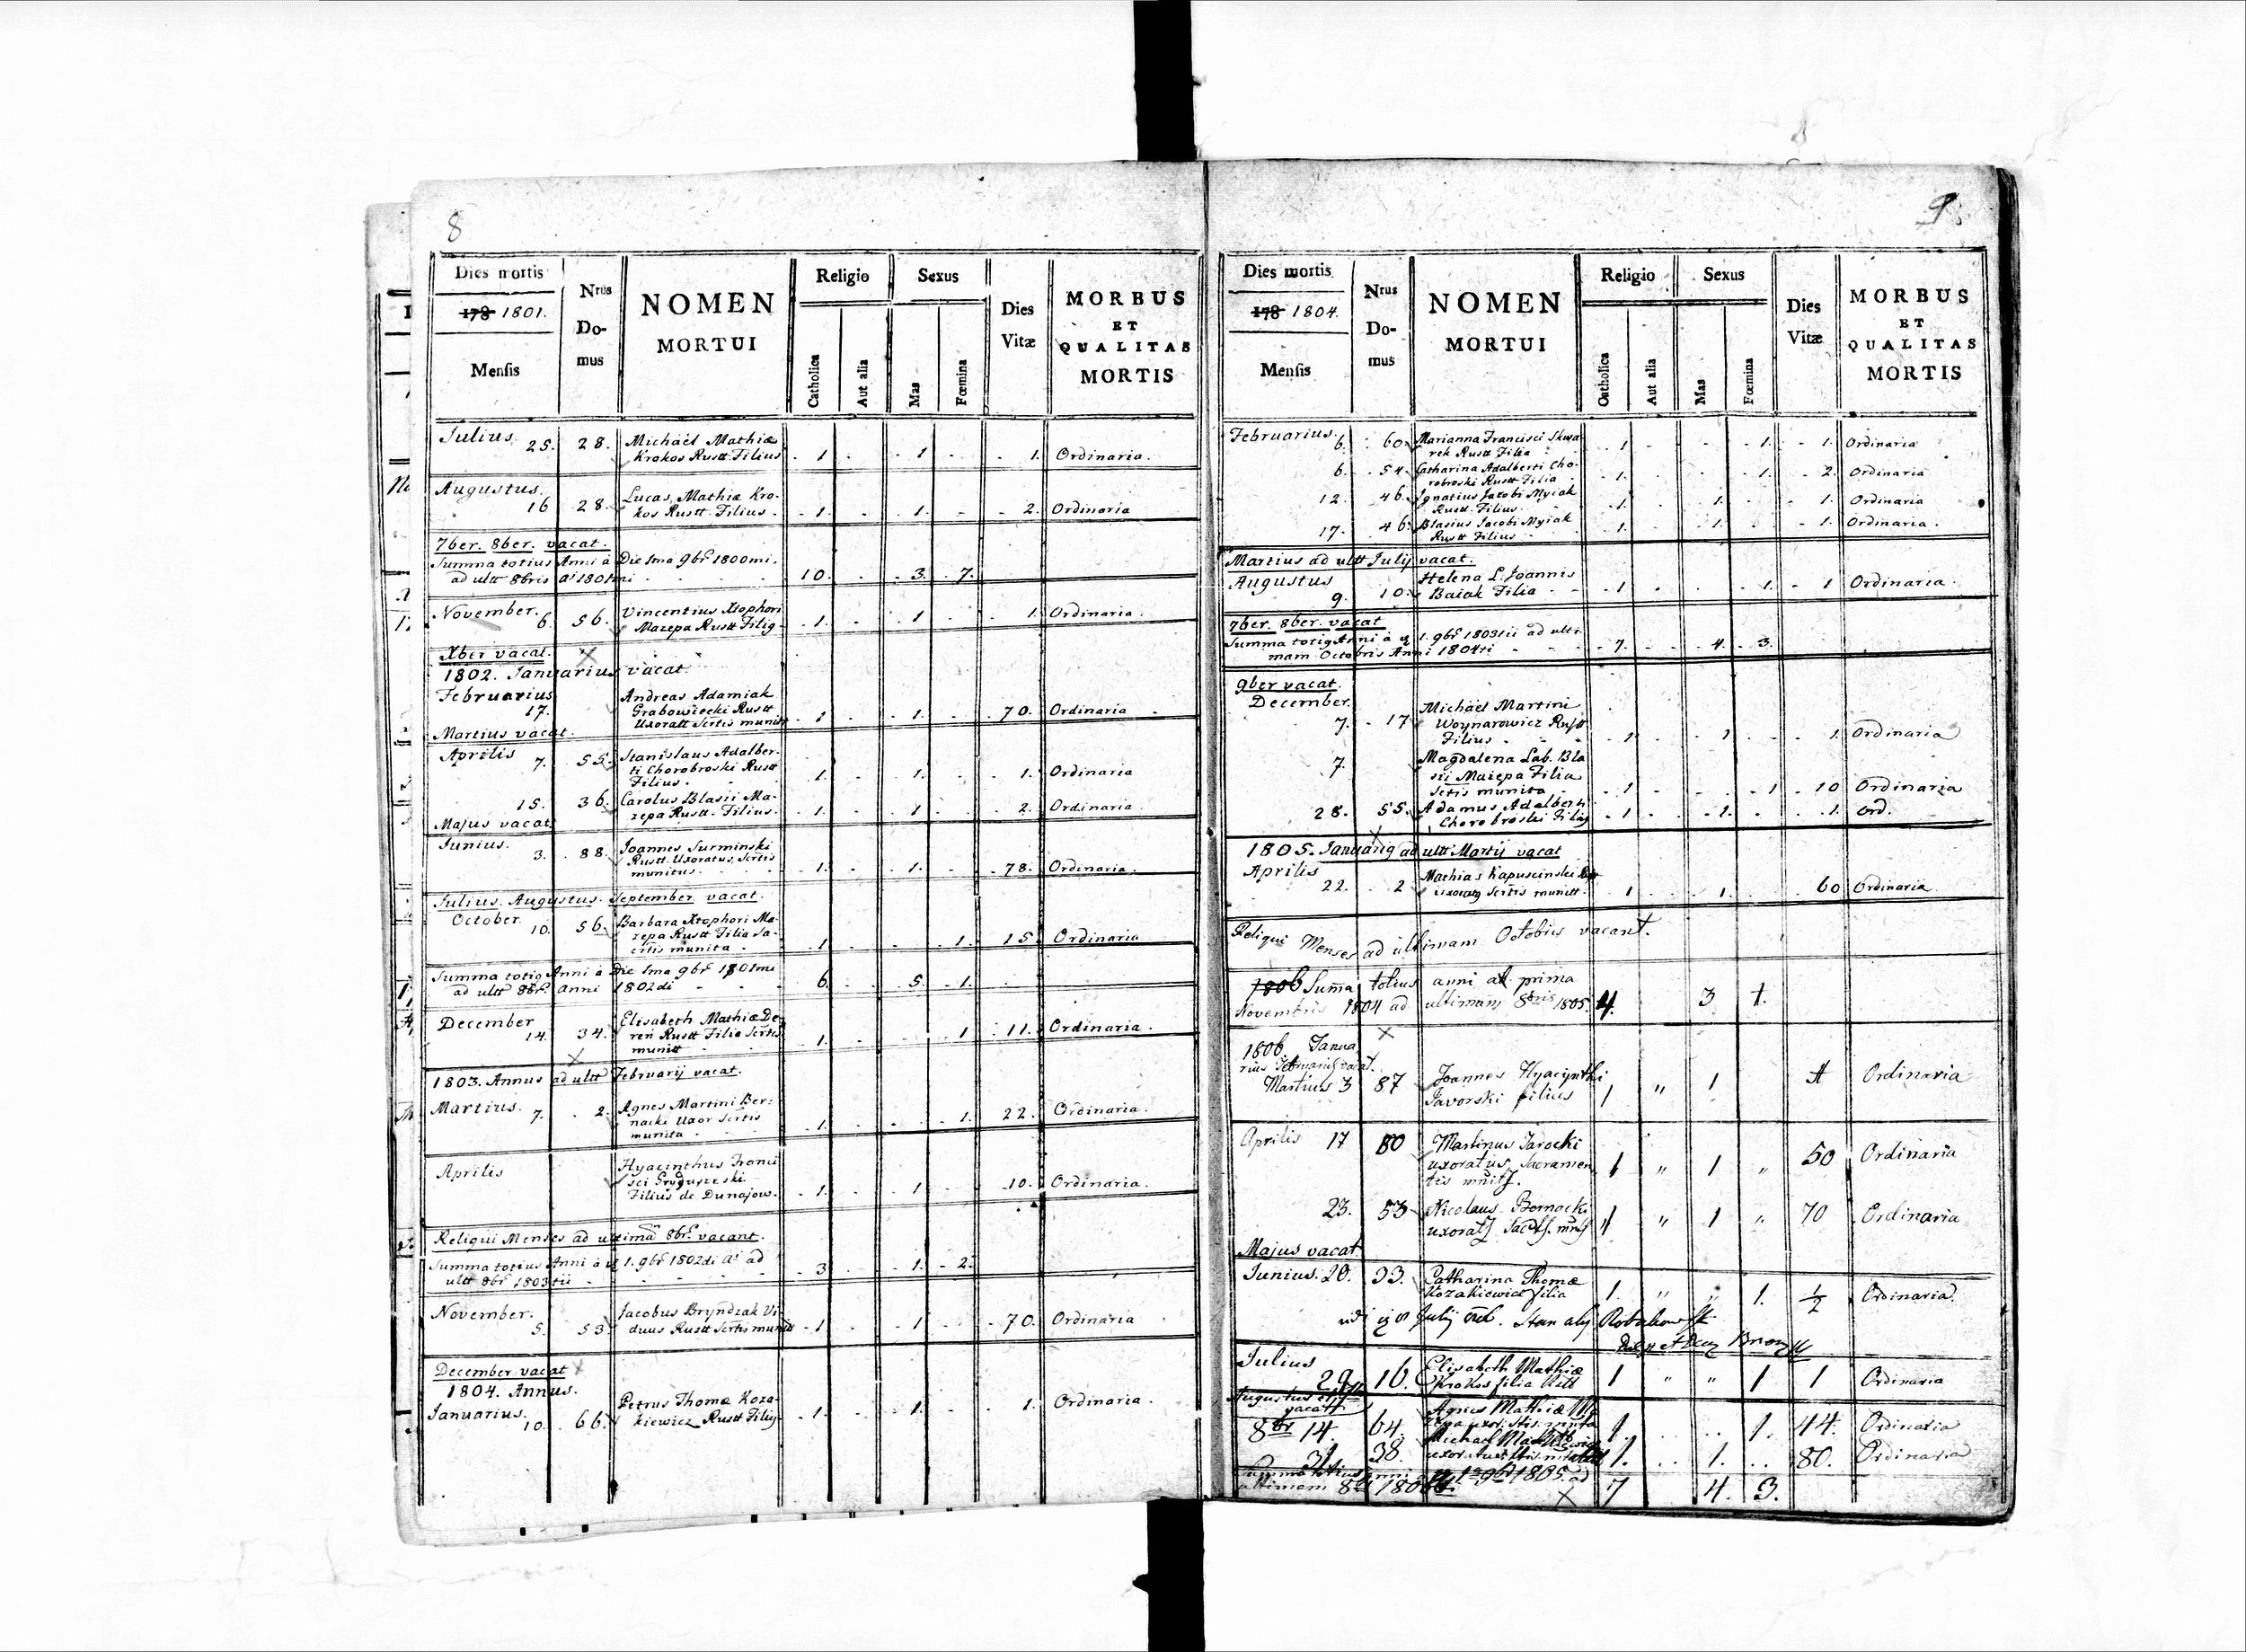 8
Dies mortis
178 1801.
Mensis
Nrus
Do-
mus
NOMEN
MORTUI
Religio
Catholica
Aut alia
Sexus
Mas
Fœmina
Dies
Vitæ
MORBUS
ET
QUALITAS
MORTIS
Julius. 25. 28. Michaël Mathiæ
Krokos Rustt Filius . 1 . . 1 . 1. Ordinaria.
Augustus.
16 28. Lucas, Mathiæ Kro-
kos Rustt. Filius . 1. . 1. . 2. Ordinaria
7ber. 8ber. vacat.
Summa totius Anni à Die 1ma 9br 1800mi.
ad ultt 8bris ai 1801mi . 10. . 3. 7.
November. 6. 56. Vincentius Xtophori
Mazepa Rustt Filig . 1. . 1 . 1. Ordinaria.
Xber vacat.
1802. Januarius vacat.
Februarius Andreas Adamiak
17. Grabowiecki Rustt
Uxoratt Scrtis munitt . 1 . 1. . 70. Ordinaria
Martius vacat.
Aprilis 7. 55. Stanislaus Adalber-
ti Chorobroski Rustt
Filius . 1. . 1. . 1. Ordinaria
15. 36. Carolus Blasii Ma-
zepa Rustt. Filius. . 1. . 1 . 2. Ordinaria.
Majus vacat.
Junius. 3. 88. Joannes Surminski
Rustt. Uxoratus, Scrtis
munitus . 1. . 1. . 78. Ordinaria.
Julius. Augustus. September vacat.
October. 10. 56. Barbara Xtophori Ma-
zepa Rustt Filia Sa-
crtis munita . 1 . . 1. 15. Ordinaria
Summa totig Anni à Die 1ma 9br 1801mi
ad ultt 8br. Anni 1802di . 6. . 5. 1.
December 14. 34. Elisabeth Mathiæ De-
reń Rustt Filia Scrtis
munitt . 1. . . 1 11. Ordinaria.
1803. Annus ad ultt Februarij vacat.
Martius. 7. 2. Agnes Martini Ber-
nacki Uxor Scrtis
munita . 1. . . 1. 22. Ordinaria.
Aprilis Hyacinthus Franci
sci Grygurzeski
Filius de Dunajow. . 1. . 1 . 10. Ordinaria.
Reliqui Menses ad ultima 8br. vacant.
Summa totius Anni à 1. 9br 1802di ai ad
ultt 8br 1803tii . 3. . 1. 2.
November.
5. 53. Jacobus Bryndzak Vi-
duus Rustt Scrtis munitt . 1 . 1 . 70. Ordinaria
December vacat
1804. Annus.
Januarius. 10. 66. Petrus Thomæ Koza-
kiewicz Rustt Filig . 1. . 1. . 1. Ordinaria.
9.
Dies mortis
178 1804.
Mensis
Nrus
Do-
mus
NOMEN
MORTUI
Religio
Catholica
Aut alia
Sexus
Mas
Fœmina
Dies
Vitæ
MORBUS
ET
QUALITAS
MORTIS
Februarius. 6. 60. Marianna Francisci Skwa
rek Rustt Filia . 1 . . 1. 1. Ordinaria
6. 54. Catharina Adalberti Cho-
robroski Rustt Filia . 1. . . 1. 2. Ordinaria
12. 46. Ignatius Jacobi Myiak
Rustt. Filius . 1. . 1. . 1. Ordinaria
17. 46. Blasius Jacobi Myiak
Rustt Filius . 1. . 1. . 1. Ordinaria.
Martius ad ultt Julij vacat.
Augustus Helena L. Joannis
9. 10. Baiak Filia . 1 . . 1. 1 Ordinaria.
7ber. 8ber. vacat
Summa totig Anni à 1. 9br 1803tii ad ulti-
mam Octobris Anni 1804ti . 7. . 4. 3.
9ber vacat.
December. Michaël Martini
7. 17 Woynarowicz Rustt
Filius . 1 . 1 . 1. Ordinaria
7. Magdalena Lab. Bla
sii Mazepa Filia
Scrtis munita . 1 . . 1 10 Ordinaria
28. 55. Adamus Adalberti
Chorobroski Filig . 1 . 1. . 1. Ord.
1805. Januarig ad ultt Martij vacat
Aprilis Mathias Kapuscinski
22. 2 uxoratg Scrtis munitt . 1 . 1. . 60 Ordinaria
Reliqui Menses ad ultimam Octobris vacant.
1806 Suma totius anni a prima
Novembris 1804 ad ultimam 8bris 1805. 4. 3 1.
1806. Janua
rius Februarius vacat.
Martius 3 87 Joannes Hyacynthi
Javorski filius 1 " 1 Ordinaria
Aprilis 17 80 Martinus Jarocki
uxoratus, Sacramen
tis 1 " 1 " 50 Ordinaria
23. 53 Nicolaus Bernacki
1 " 1 " 70 Ordinaria
Majus vacat
Junius. 20. 33. Catharina Thomæ
Kozakiewicz filia 1. " " 1. ½ Ordinaria.
Julius
29 16. Elisabeth Mathiæ
Krokos filia 1 " " 1 1 Ordinaria
Augustus
vacatt
8br 14. 64. Agnes Mathiæ
1. .. 1. 44. Ordinaria
31 38. Michael
1. .. 1. .. 80. Ordinaria
Summa totius anni 9br 1805. ad
ultimam 8br 7 4. 3.